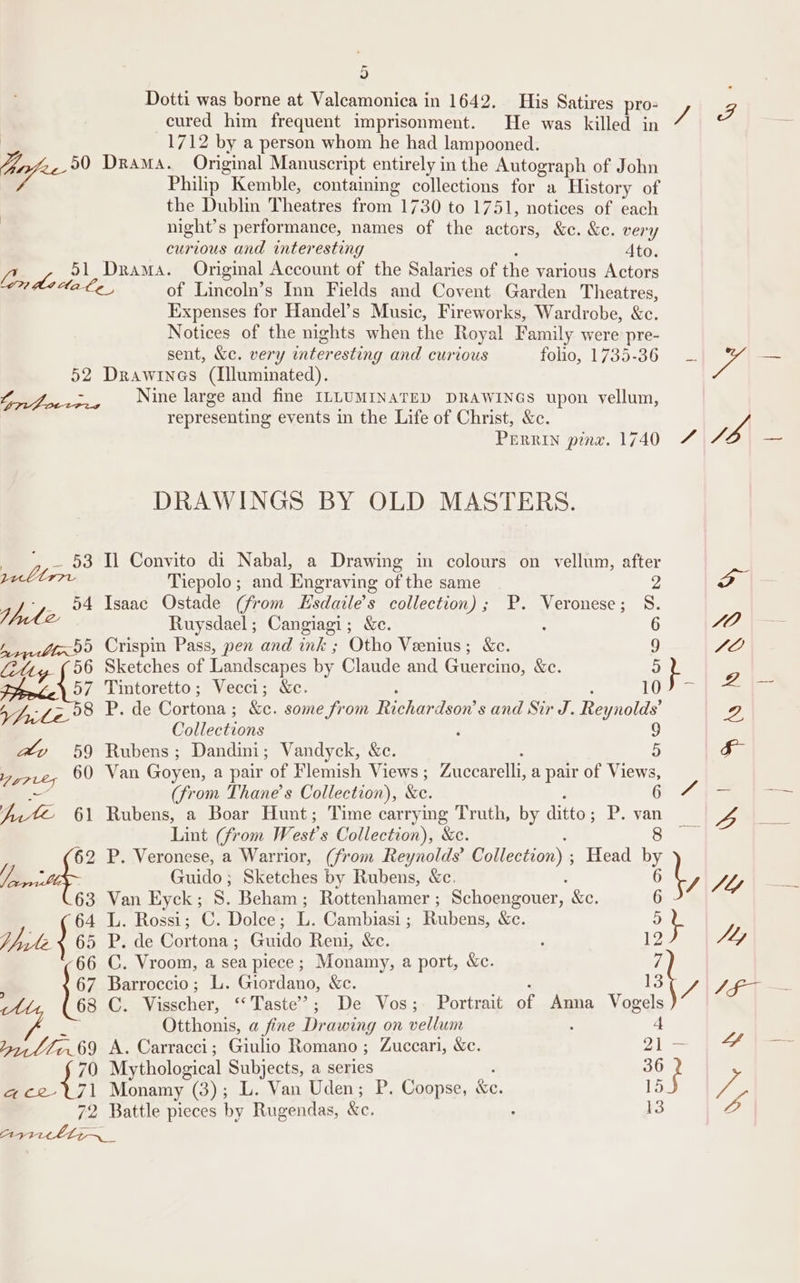 5
Dotti was borne at Valcamonica in 1642. His Satires pro-
cured him frequent imprisonment. He was killed in
1712 by a person whom he had lampooned.
50 Drama. Original Manuscript entirely in the Autograph of John
Philip Kemble, containing collections for a History of
the Dublin Theatres from 1730 to 1751, notices of each
night's performance, names of the actors, &c. &c. very
curious and interesting 4to.
51 Drama. Original Account of the Salaries of the various Actors
of Lincoln's Inn Fields and Covent Garden Theatres,
Expenses for Handel's Music, Fireworks, Wardrobe, &c.
Notices of the nights when the Royal Family were pre-
sent, &c. very interesting and curious folio, 1735-36
52 Drawings (Illuminated).
Nine large and fine ILLUMINATED DRAWINGS upon vellum,
representing events in the Life of Christ, &c.
Perrin pinx. 1740
DRAWINGS BY OLD MASTERS.
53 Il Convito di Nabal, a Drawing in colours on vellum, after
Tiepolo; and Engraving of the same 2
54 Isaac Ostade (from Esdaile's collection); P. Veronese; S.
Ruysdael; Cangiagi; &c. 6
55 Crispin Pass, pen and ink; Otho Vænius; &c. 9
56 Sketches of Landscapes by Claude and Guercino, &c. 5
57 Tintoretto; Vecci; &c. 10
White 58 P. de Cortona; &c. some from Richardson's and Sir J. Reynolds'
Collections 9
59 Rubens; Dandini; Vandyck, &c. 5
60 Van Goyen, a pair of Flemish Views; Zuccarelli, a pair of Views,
(from Thane's Collection), &c. 6
61 Rubens, a Boar Hunt; Time carrying Truth, by ditto; P. van
Lint (from West's Collection), &c. 8
62 P. Veronese, a Warrior, (from Reynolds' Collection); Head by
Guido; Sketches by Rubens, &c. 6
63 Van Eyck; S. Beham; Rottenhamer; Schoengouer, &c. 6
64 L. Rossi; C. Dolce; L. Cambiasi; Rubens, &c. 5
White 65 P. de Cortona; Guido Reni, &c. 12
66 C. Vroom, a sea piece; Monamy, a port, &c. 7
67 Barroccio; L. Giordano, &c. 13
68 C. Visscher, "Taste"; De Vos; Portrait of Anna Vogels
Otthonis, a fine Drawing on vellum 4
69 A. Carracci; Giulio Romano; Zuccari, &c. 21
70 Mythological Subjects, a series 36
71 Monamy (3); L. Van Uden; P. Coopse, &c. 15
72 Battle pieces by Rugendas, &c. 13